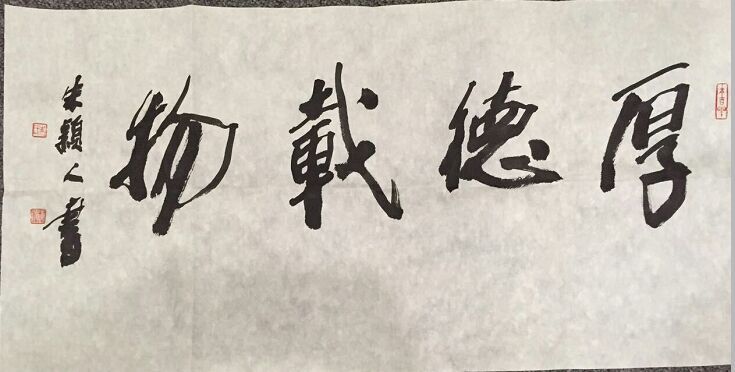 厚德載物
朱穎人書